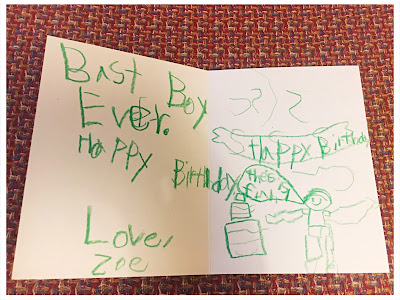 Bast Boy
Ever.
Happy Birthday
Love,
Zoe
Happy Birthday